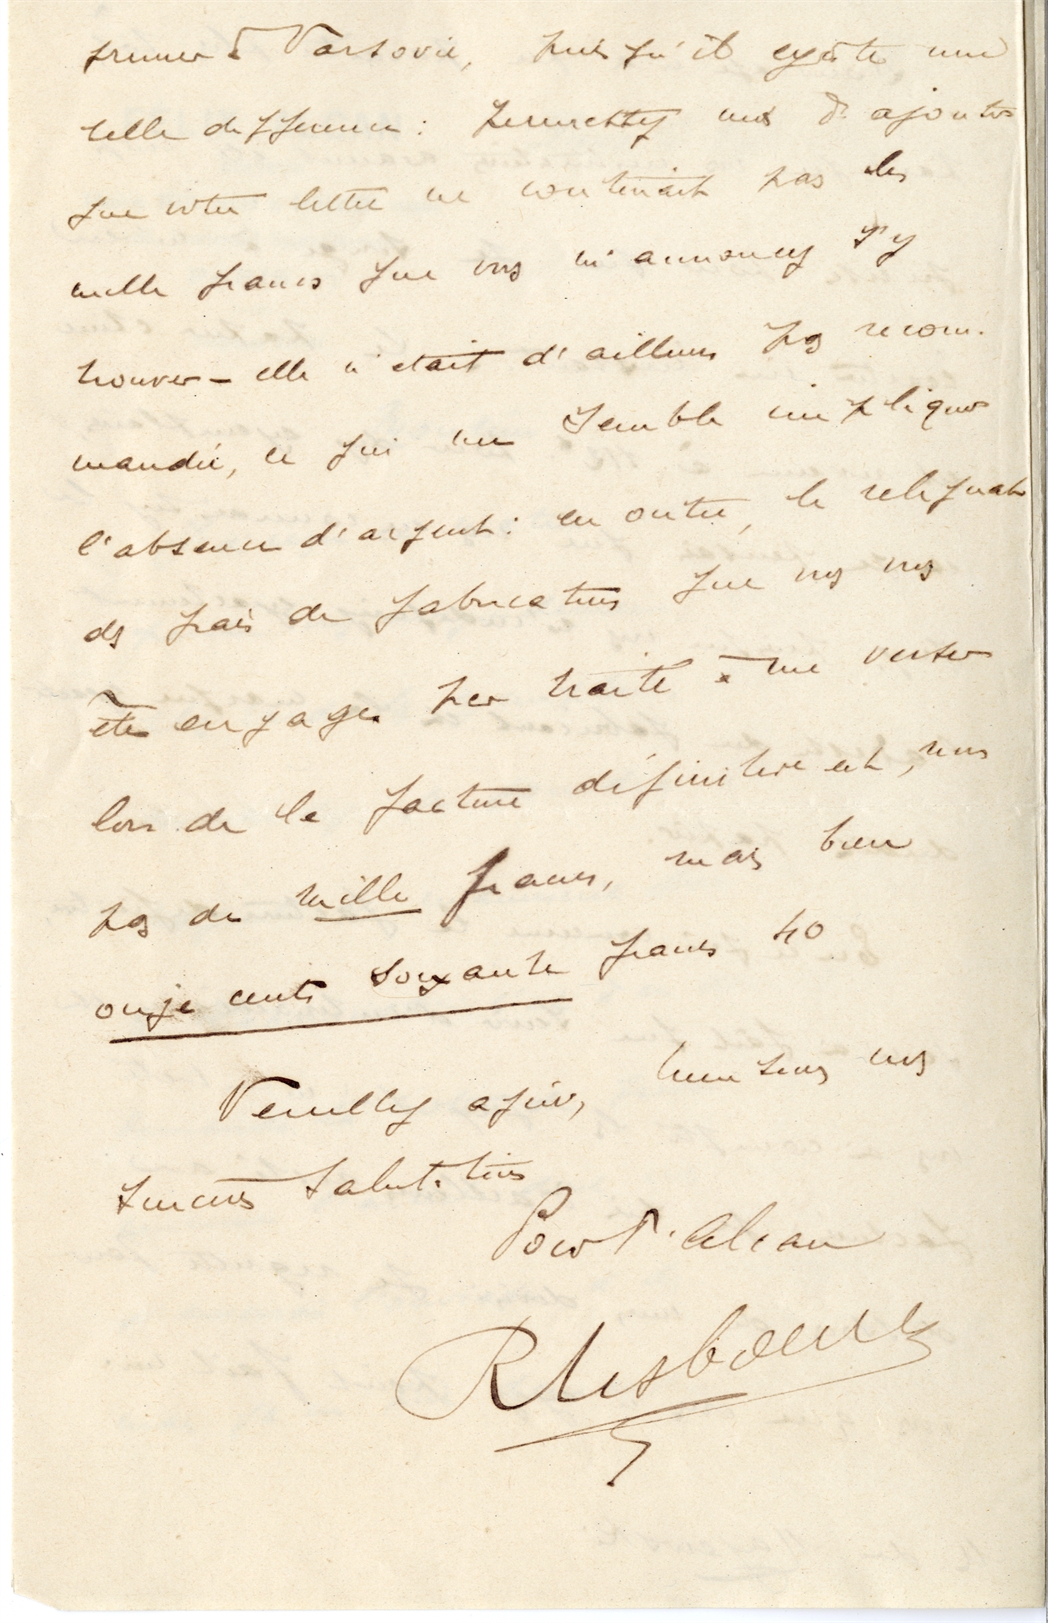 primer à Varsovie, puisqu'il existe une
telle différence : permettez moi d'ajouter
que votre lettre ne contenait pas les
mille francs que vous m'annoncez s'y
trouver – elle n'était d'ailleurs pas recom-
mandée, ce qui me semble impliquer
l'absence d'argent : en outre, le reliquat
des frais de fabrication que vous vous
êtes engagé par traité à me verser
lors de la facture définitive est, non
pas de mille francs, mais bien
onze cents soixante francs 40
Veuillez agréer, Monsieur, nos
sincères salutations
Pour F. Alcan
R Lisbonne